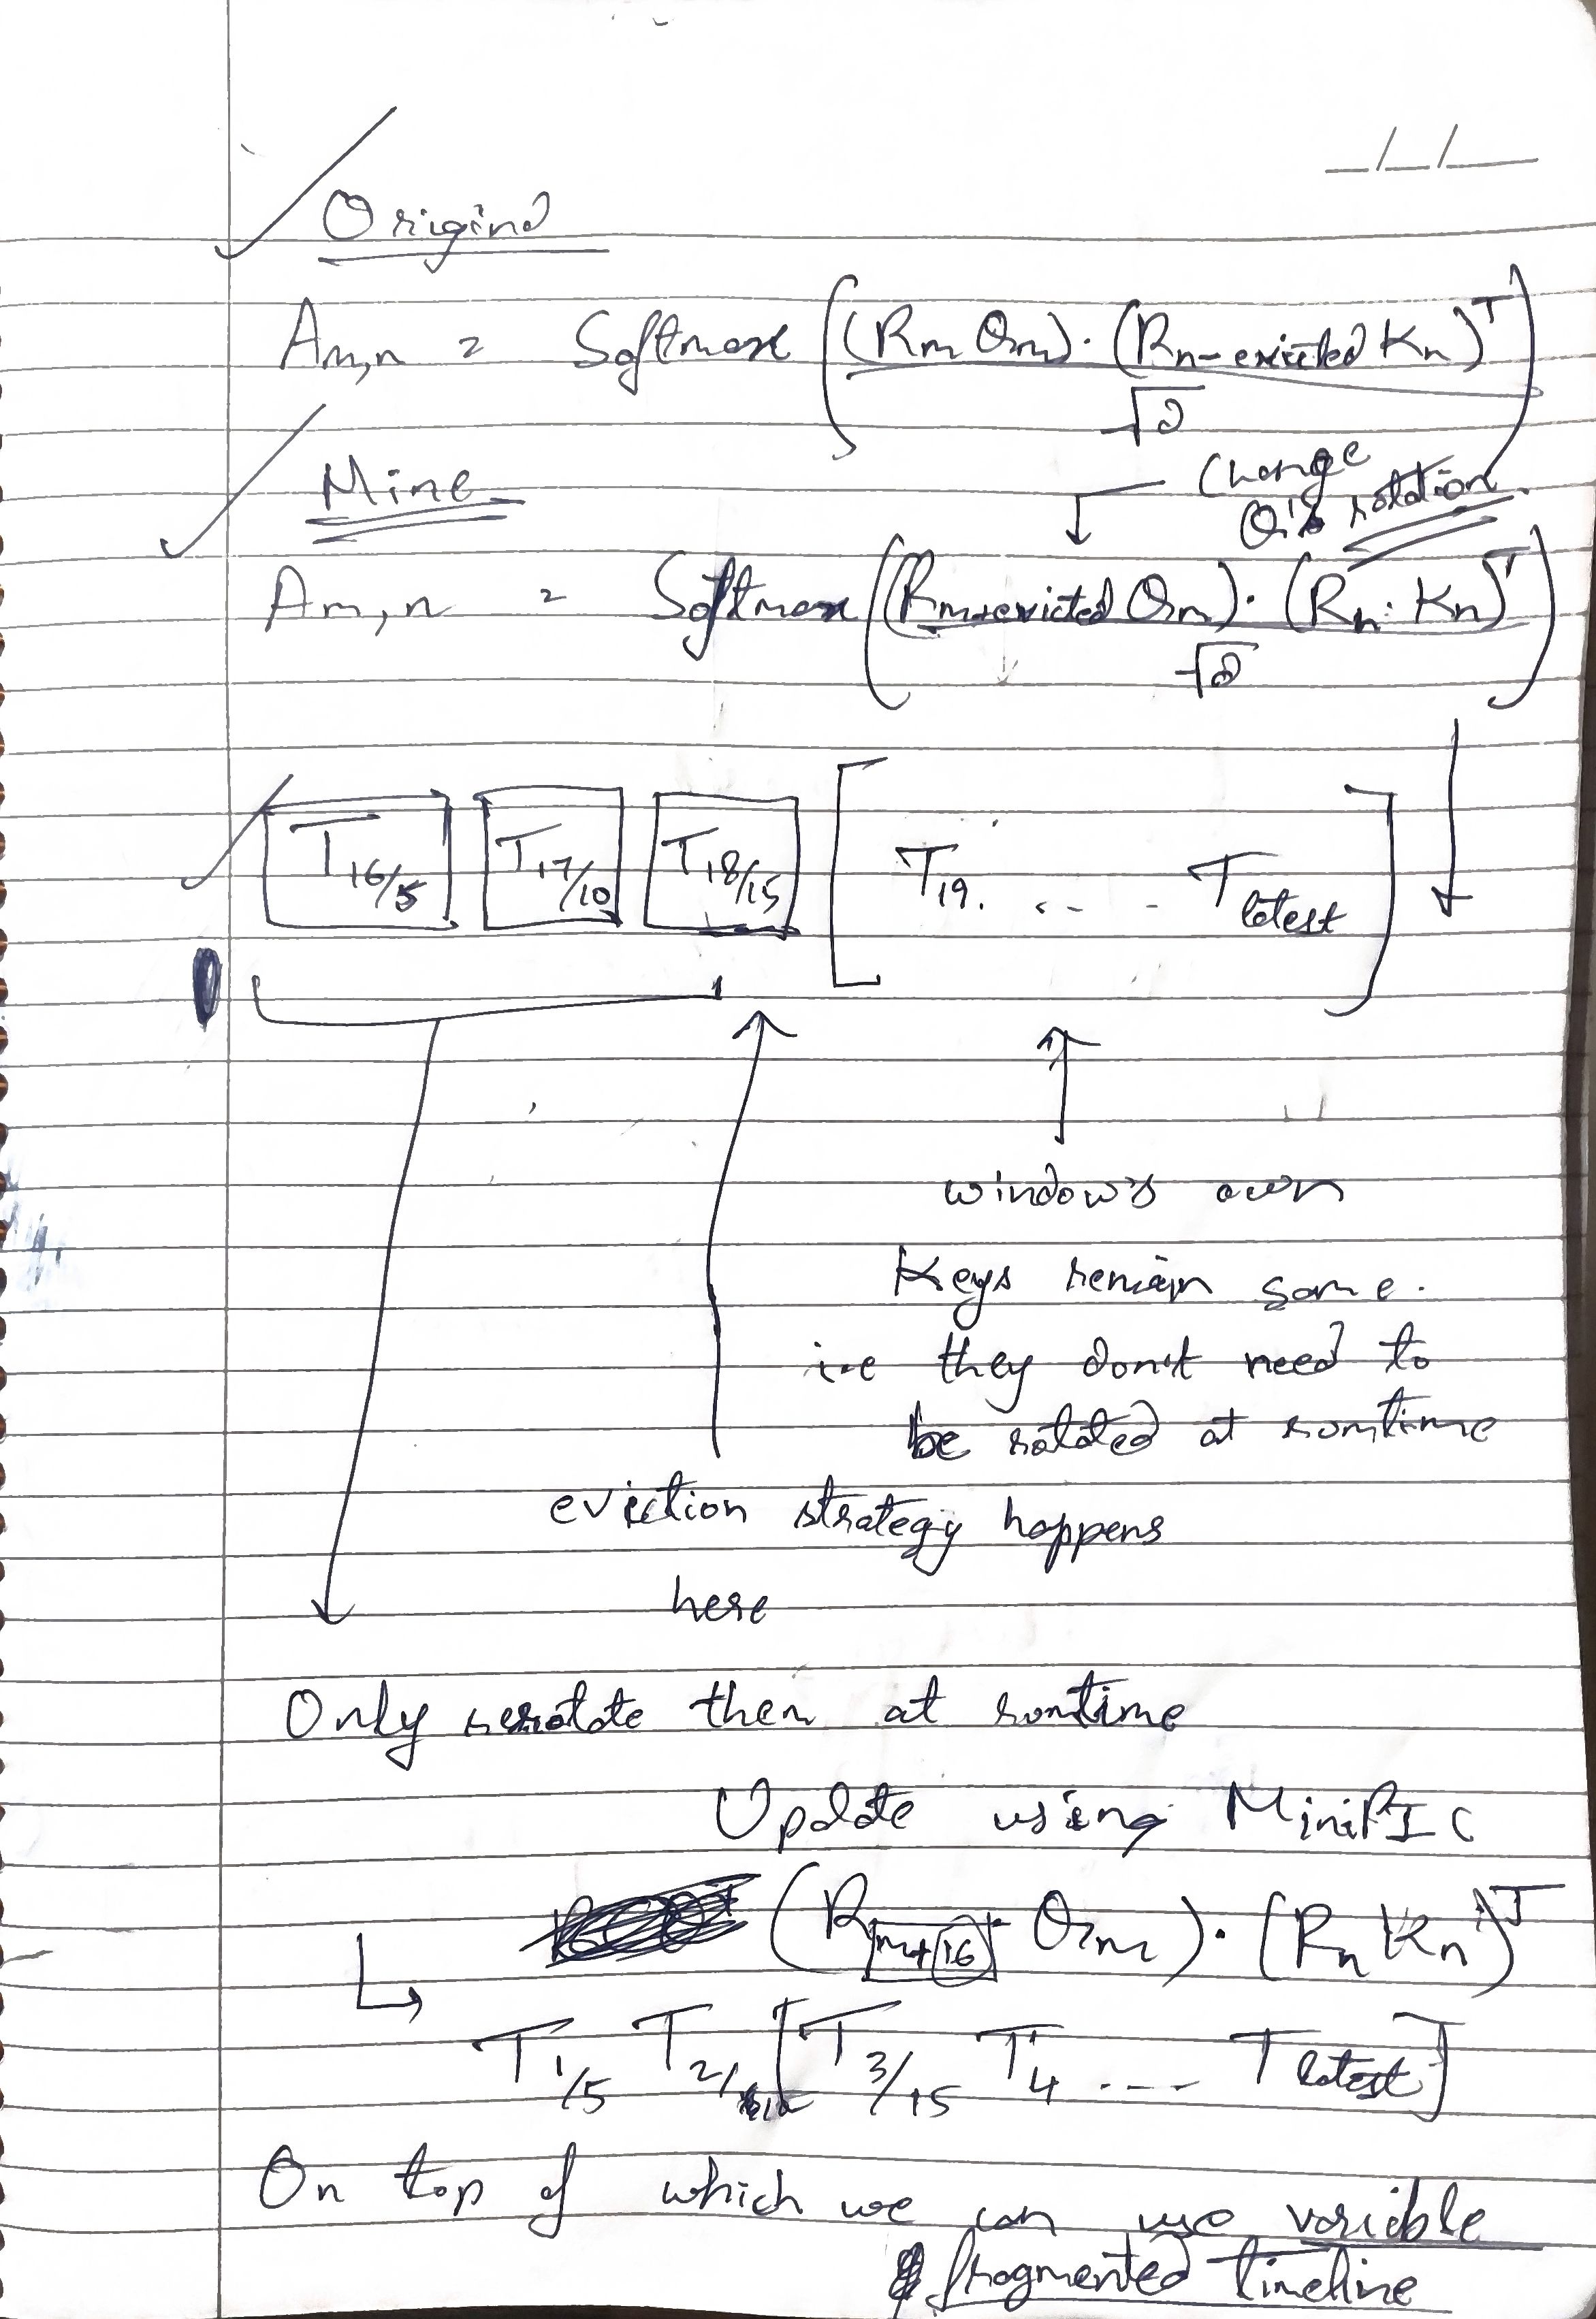 _/_/_
Original
Am,n = Softmax ((Rm Qm) · (Rn-evicted Kn)ᵀ
√d
Change
Q's rotation.
Mine
Am,n = Softmax ((Rm+evicted Qm) · (Rn · Kn)ᵀ)
√d
T16/5 T17/10 T18/15 [T19. .. - Tlatest]
window's own
Keys remain same.
i.e they don't need to
be rotated at runtime
eviction strategy happens
here
Only rerotate them at runtime
Update using MiniPIC
(Rm+16 · Qm) · (Rn Kn)ᵀ
T1/5 T2/10 [T3/15 T4 ---- Tlatest]
On top of which we can use variable
fragmented timeline